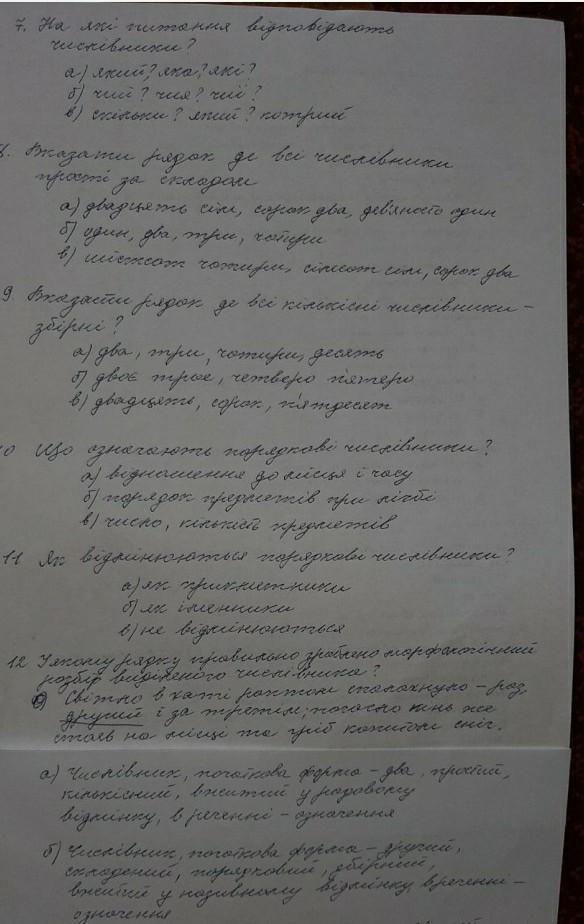 7. На які питання відповідають
числівники?
а) який? яка? які?
б) чий? чия? чиї?
в) скільки? який? котрий
8. Вказати рядок де всі числівники
прості за складом
а) двадцять сім, сорок два, дев'яносто один
б) один, два, три, чотири
в) шістсот чотири, сімсот сім, сорок два
9 Вказати рядок де всі кількісні числівники -
збірні?
а) два, три, чотири, десять
б) двоє троє, четверо п'ятеро
в) двадцять, сорок, п'ятдесят
10 Що означають порядкові числівники?
а) відношення до місця і часу
б) порядок предметів при лічбі
в) число, кількість предметів
11 Як відмінюються порядкові числівники?
а) як прикметники
б) як іменники
в) не відмінюються
12 У якому рядку правильно зроблено морфологічний
розбір виділеного числівника?
Світло в хаті раптом спалахнуло - раз,
другий і за третім; погасло кінь же
став на місці та гріб копитом сніг.
а) Числівник, початкова форма - два, простий,
кількісний, вжитий у родовому
відмінку, в реченні - означення
б) Числівник, початкова форма - другий,
складений, порядковий, збірний,
вжитий у називному відмінку в реченні -
означення